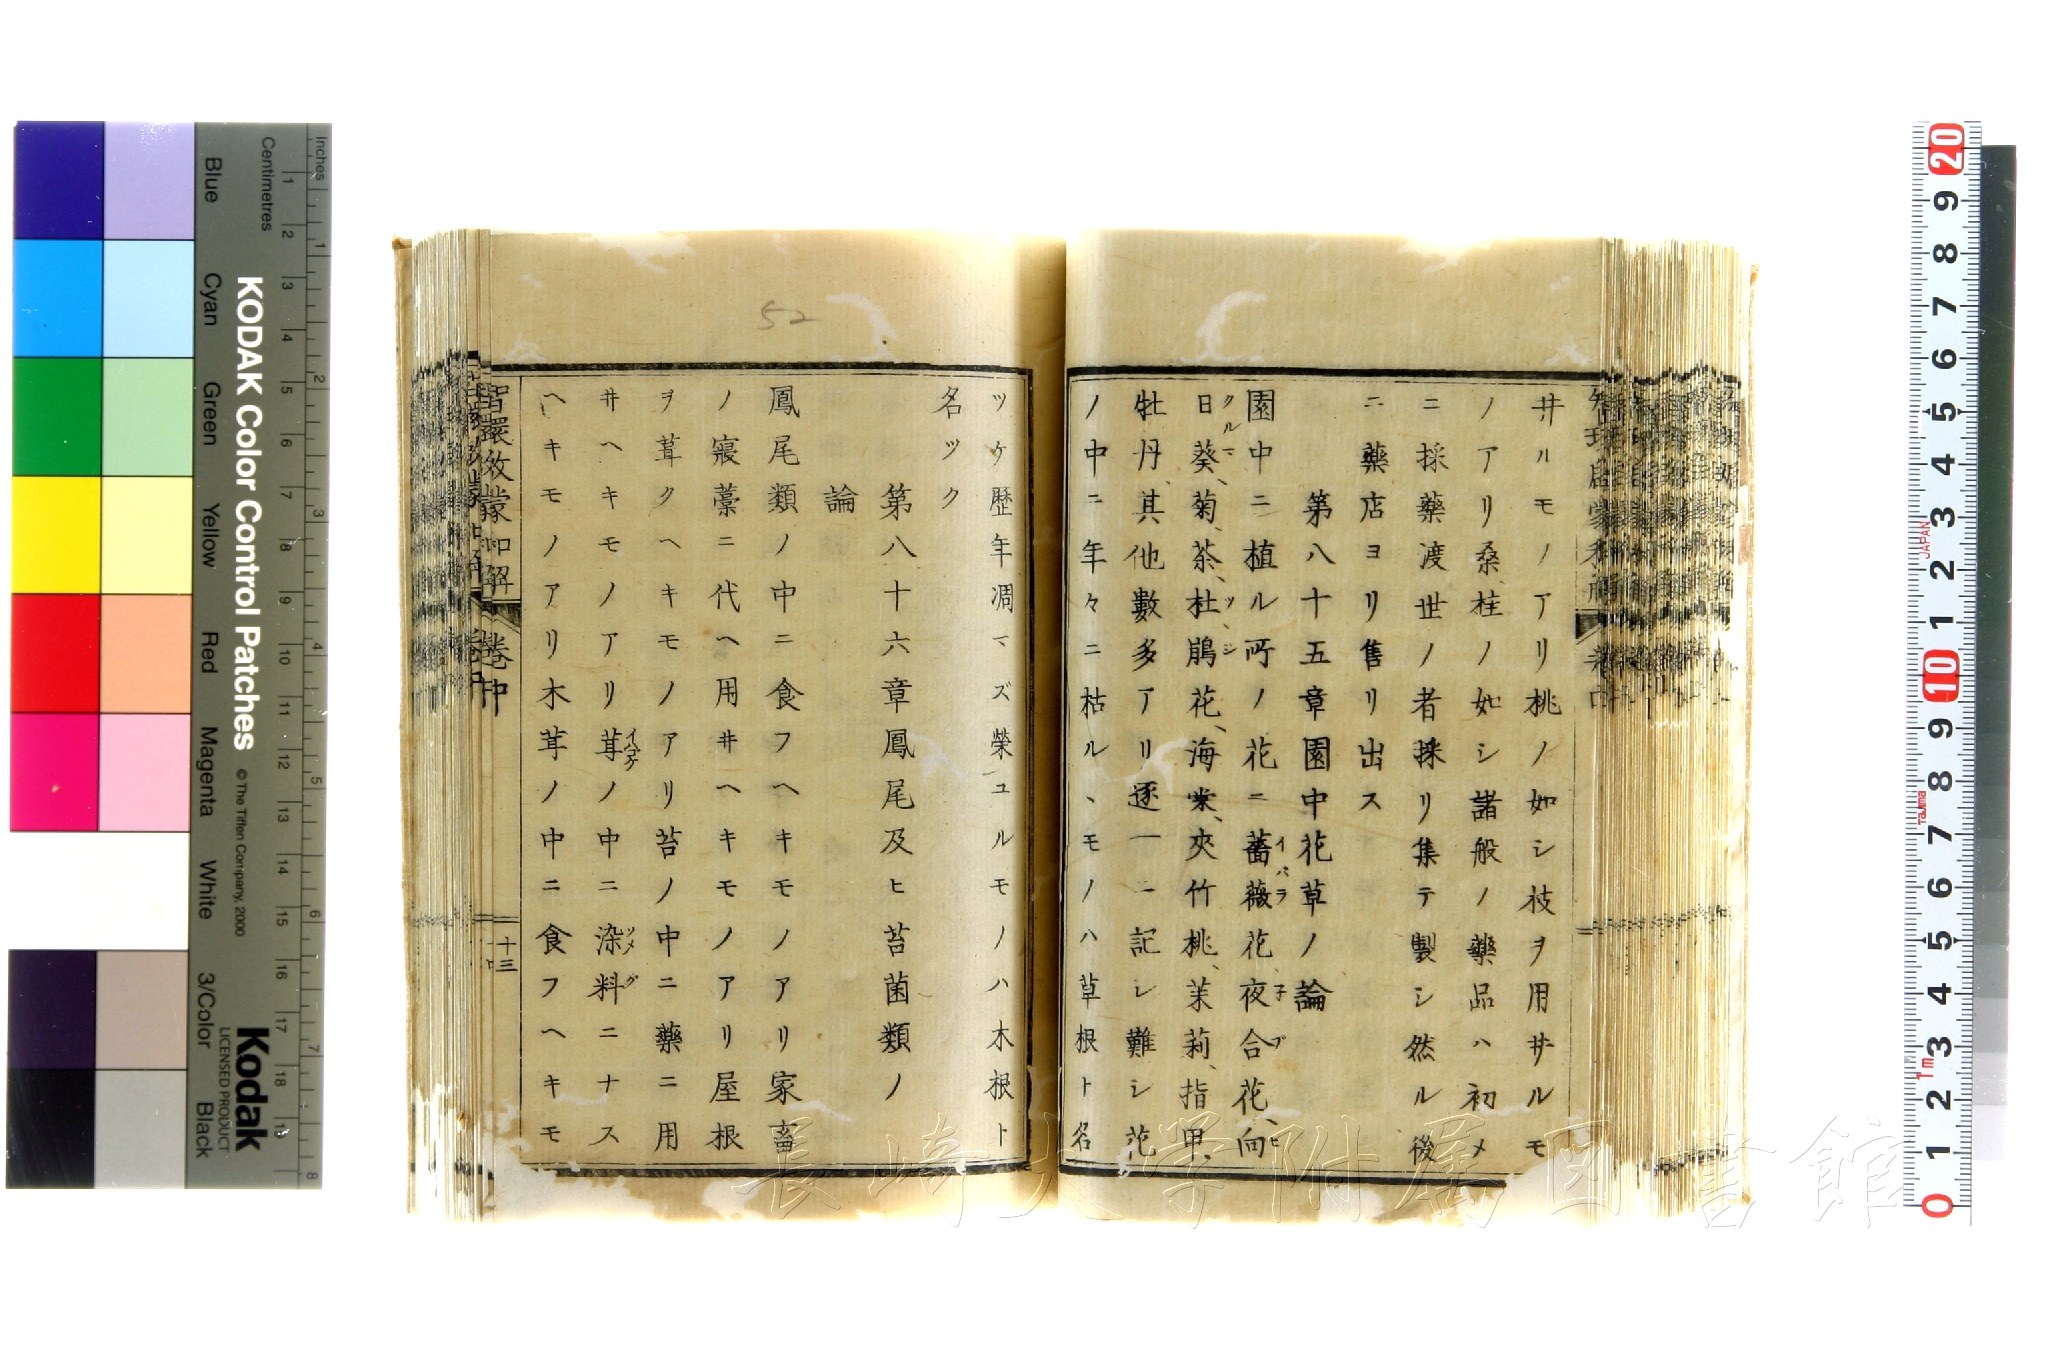 井ルモノアリ桃ノ如シ枝ヲ用井ルモ
ノアリ桑桂ノ如シ諸般ノ藥品ハ初メ
ニ採藥渡世ノ者採リ集テ製シ然ル後
ニ藥店ヨリ售リ出ス
第八十五章園中花草ノ論
園中ニ植ル所ノ花ニ薔薇花、夜合花、向
日葵、菊、茶、杜鵑花、海棠、夾竹桃、茉莉、指甲、
牡丹、其他數多アリ逐一ニ記シ難シ花
ノ中ニ年々ニ枯ルヽモノハ草根ト名
ツケ歴年凋マズ榮ユルモノハ木根ト
名ツク
第八十六章鳳尾及ヒ苔菌類ノ
論
鳳尾類ノ中ニ食フヘキモノアリ家畜
ノ寢藁ニ代ヘ用井ヘキモノアリ屋根
ヲ葺クヘキモノアリ苔ノ中ニ藥ニ用
井ヘキモノアリ茸ノ中ニ染料ニナス
ヘキモノアリ木茸ノ中ニ食フヘキモ
智環啓蒙和解 卷中
十三
52
KODAK Color Control Patches
© The Tiffen Company, 2000
Kodak
LICENSED PRODUCT
Inches
Centimetres
Blue
Cyan
Green
Yellow
Red
Magenta
White
3/Color
Black
1 2 3 4 5 6 7 8 9 10 11 12 13 14 15 16 17 18 19
1 2 3 4 5 6 7 8
20 9 8 7 6 5 4 3 2 1 10 9 8 7 6 5 4 3 2 1 0
JAPAN
Tajima
1m
長崎大学附属図書館